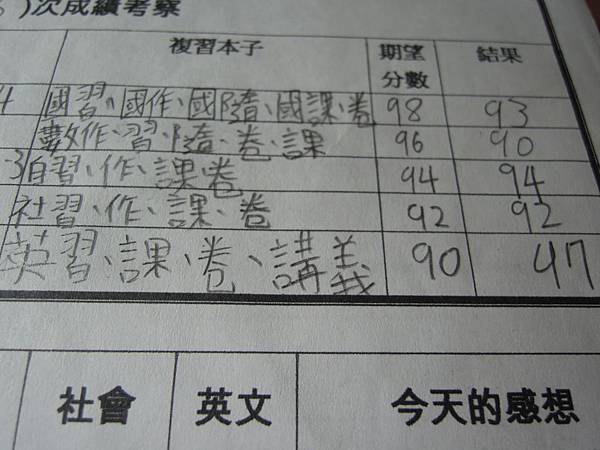 )次成績考察
複習本子 期望分數 結果
4 國習、國作、國隨、國課、卷 98 93
數作、習、隨、卷、課 96 90
3 自習、作、課卷 94 94
社習、作、課、卷 92 92
英習、課、卷、講義 90 47
社會 英文 今天的感想